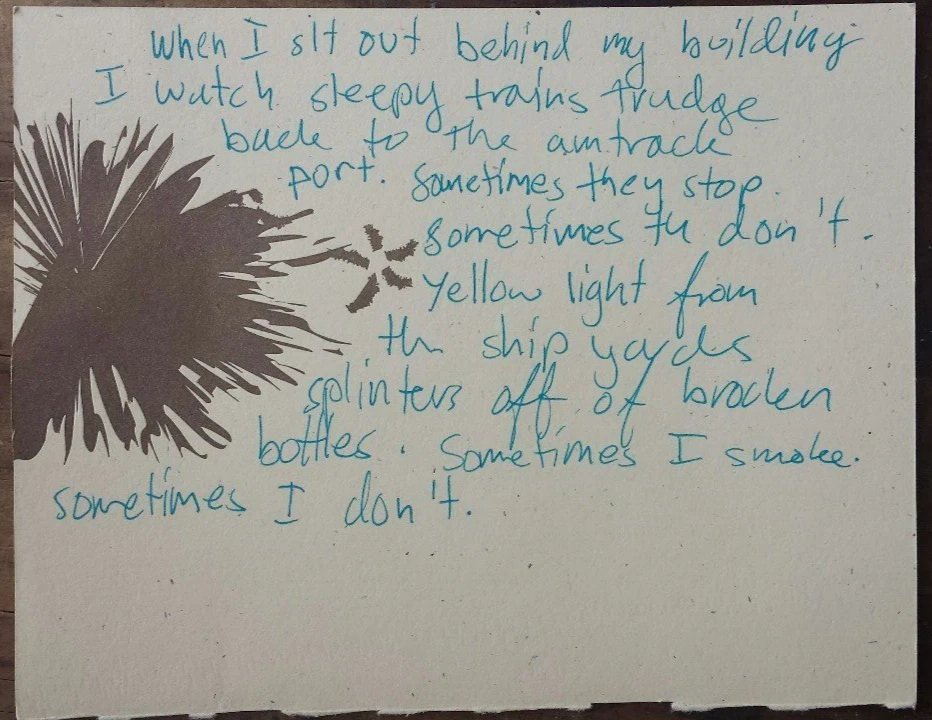 when I sit out behind my building
I watch sleepy trains trudge
back to the amtrack
port. Sometimes they stop.
sometimes th don't.
Yellow light from
th ship yards
splinters off of broken
bottles. Sometimes I smoke.
sometimes I don't.